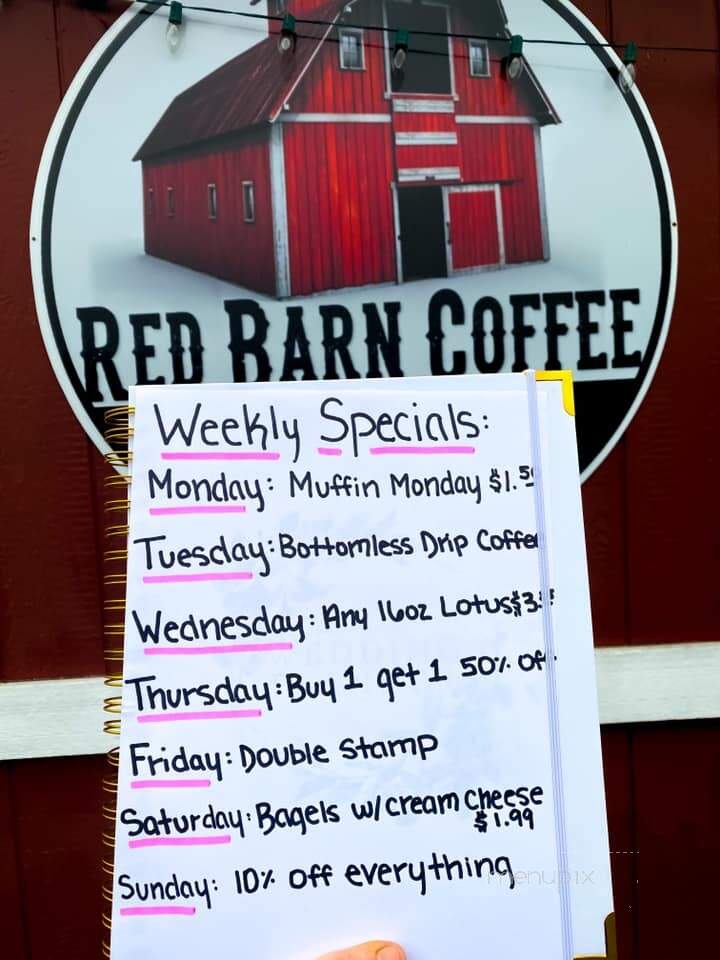 RED BARN COFFEE
Weekly Specials:
Monday: Muffin Monday $1.50
Tuesday: Bottomless Drip Coffee
Wednesday: Any 16oz Lotus
Thursday: Buy 1 get 1 50% off
Friday: Double Stamp
Saturday: Bagels w/cream cheese
$1.99
Sunday: 10% off everything
menupix